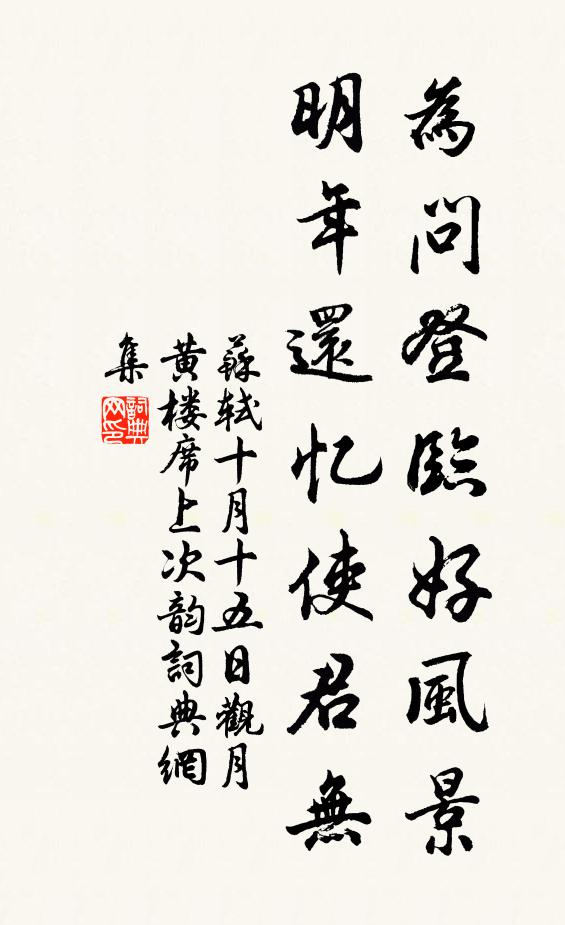 為問登臨好風景
明年還忆使君無
蘇軾十月十五日觀月
黄楼席上次韵詞典網
集
詞典
网印